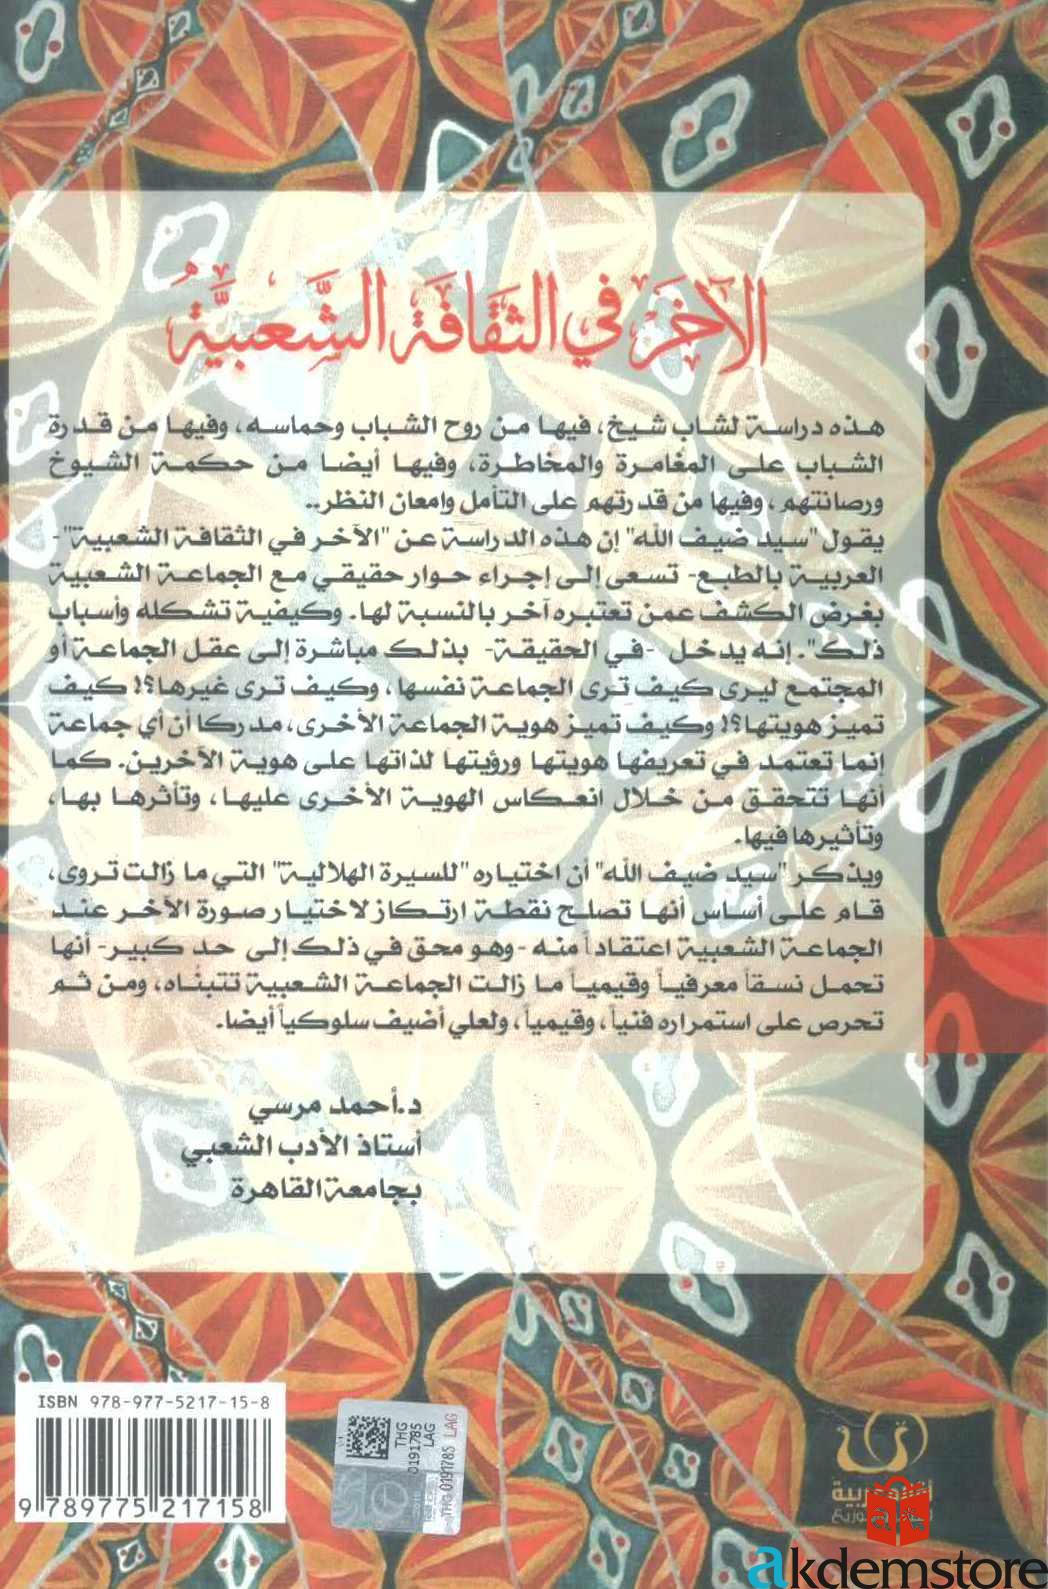 الآخَر في الثقَافَة الشَّعبيَّةُ
هذه دراسة لشاب شيخ، فيها من روح الشباب وحماسه، وفيها من قدرة
الشباب على المغامرة والمخاطرة، وفيها أيضا من حكمة الشيوخ
ورصانتهم، وفيها من قدرتهم على التأمل وإمعان النظر..
يقول "سيد ضيف الله" إن هذه الدراسة عن "الآخر في الثقافة الشعبية"-
العربية بالطبع- تسعى إلى إجراء حوار حقيقي مع الجماعة الشعبية
بغرض الكشف عمن تعتبره آخر بالنسبة لها. وكيفية تشكله وأسباب
ذلك". إنه يدخل -في الحقيقة- بذلك مباشرة إلى عقل الجماعة أو
المجتمع ليرى كيف ترى الجماعة نفسها، وكيف ترى غيرها؟! كيف
تميز هويتها؟! وكيف تميز هوية الجماعة الأخرى، مدركا أن أي جماعة
إنما تعتمد في تعريفها هويتها ورؤيتها لذاتها على هوية الآخرين. كما
أنها تتحقق من خلال انعكاس الهوية الأخرى عليها، وتأثرها بها،
وتأثيرها فيها.
ويذكر "سيد ضيف الله" أن اختياره "للسيرة الهلالية" التي ما زالت تروى،
قام على أساس أنها تصلح نقطة ارتكاز لاختيار صورة الآخر عند
الجماعة الشعبية اعتقاداً منه -وهو محق في ذلك إلى حد كبير- أنها
تحمل نسقاً معرفياً وقيمياً ما زالت الجماعة الشعبية تتبناه، ومن ثم
تحرص على استمراره فنياً، وقيمياً، ولعلي أضيف سلوكياً أيضا.
د.أحمد مرسي
أستاذ الأدب الشعبي
بجامعة القاهرة
ISBN 978-977-5217-15-8
9 789775 217158
THG
0191785
LAG
THG 0191785 LAG
akdemstore